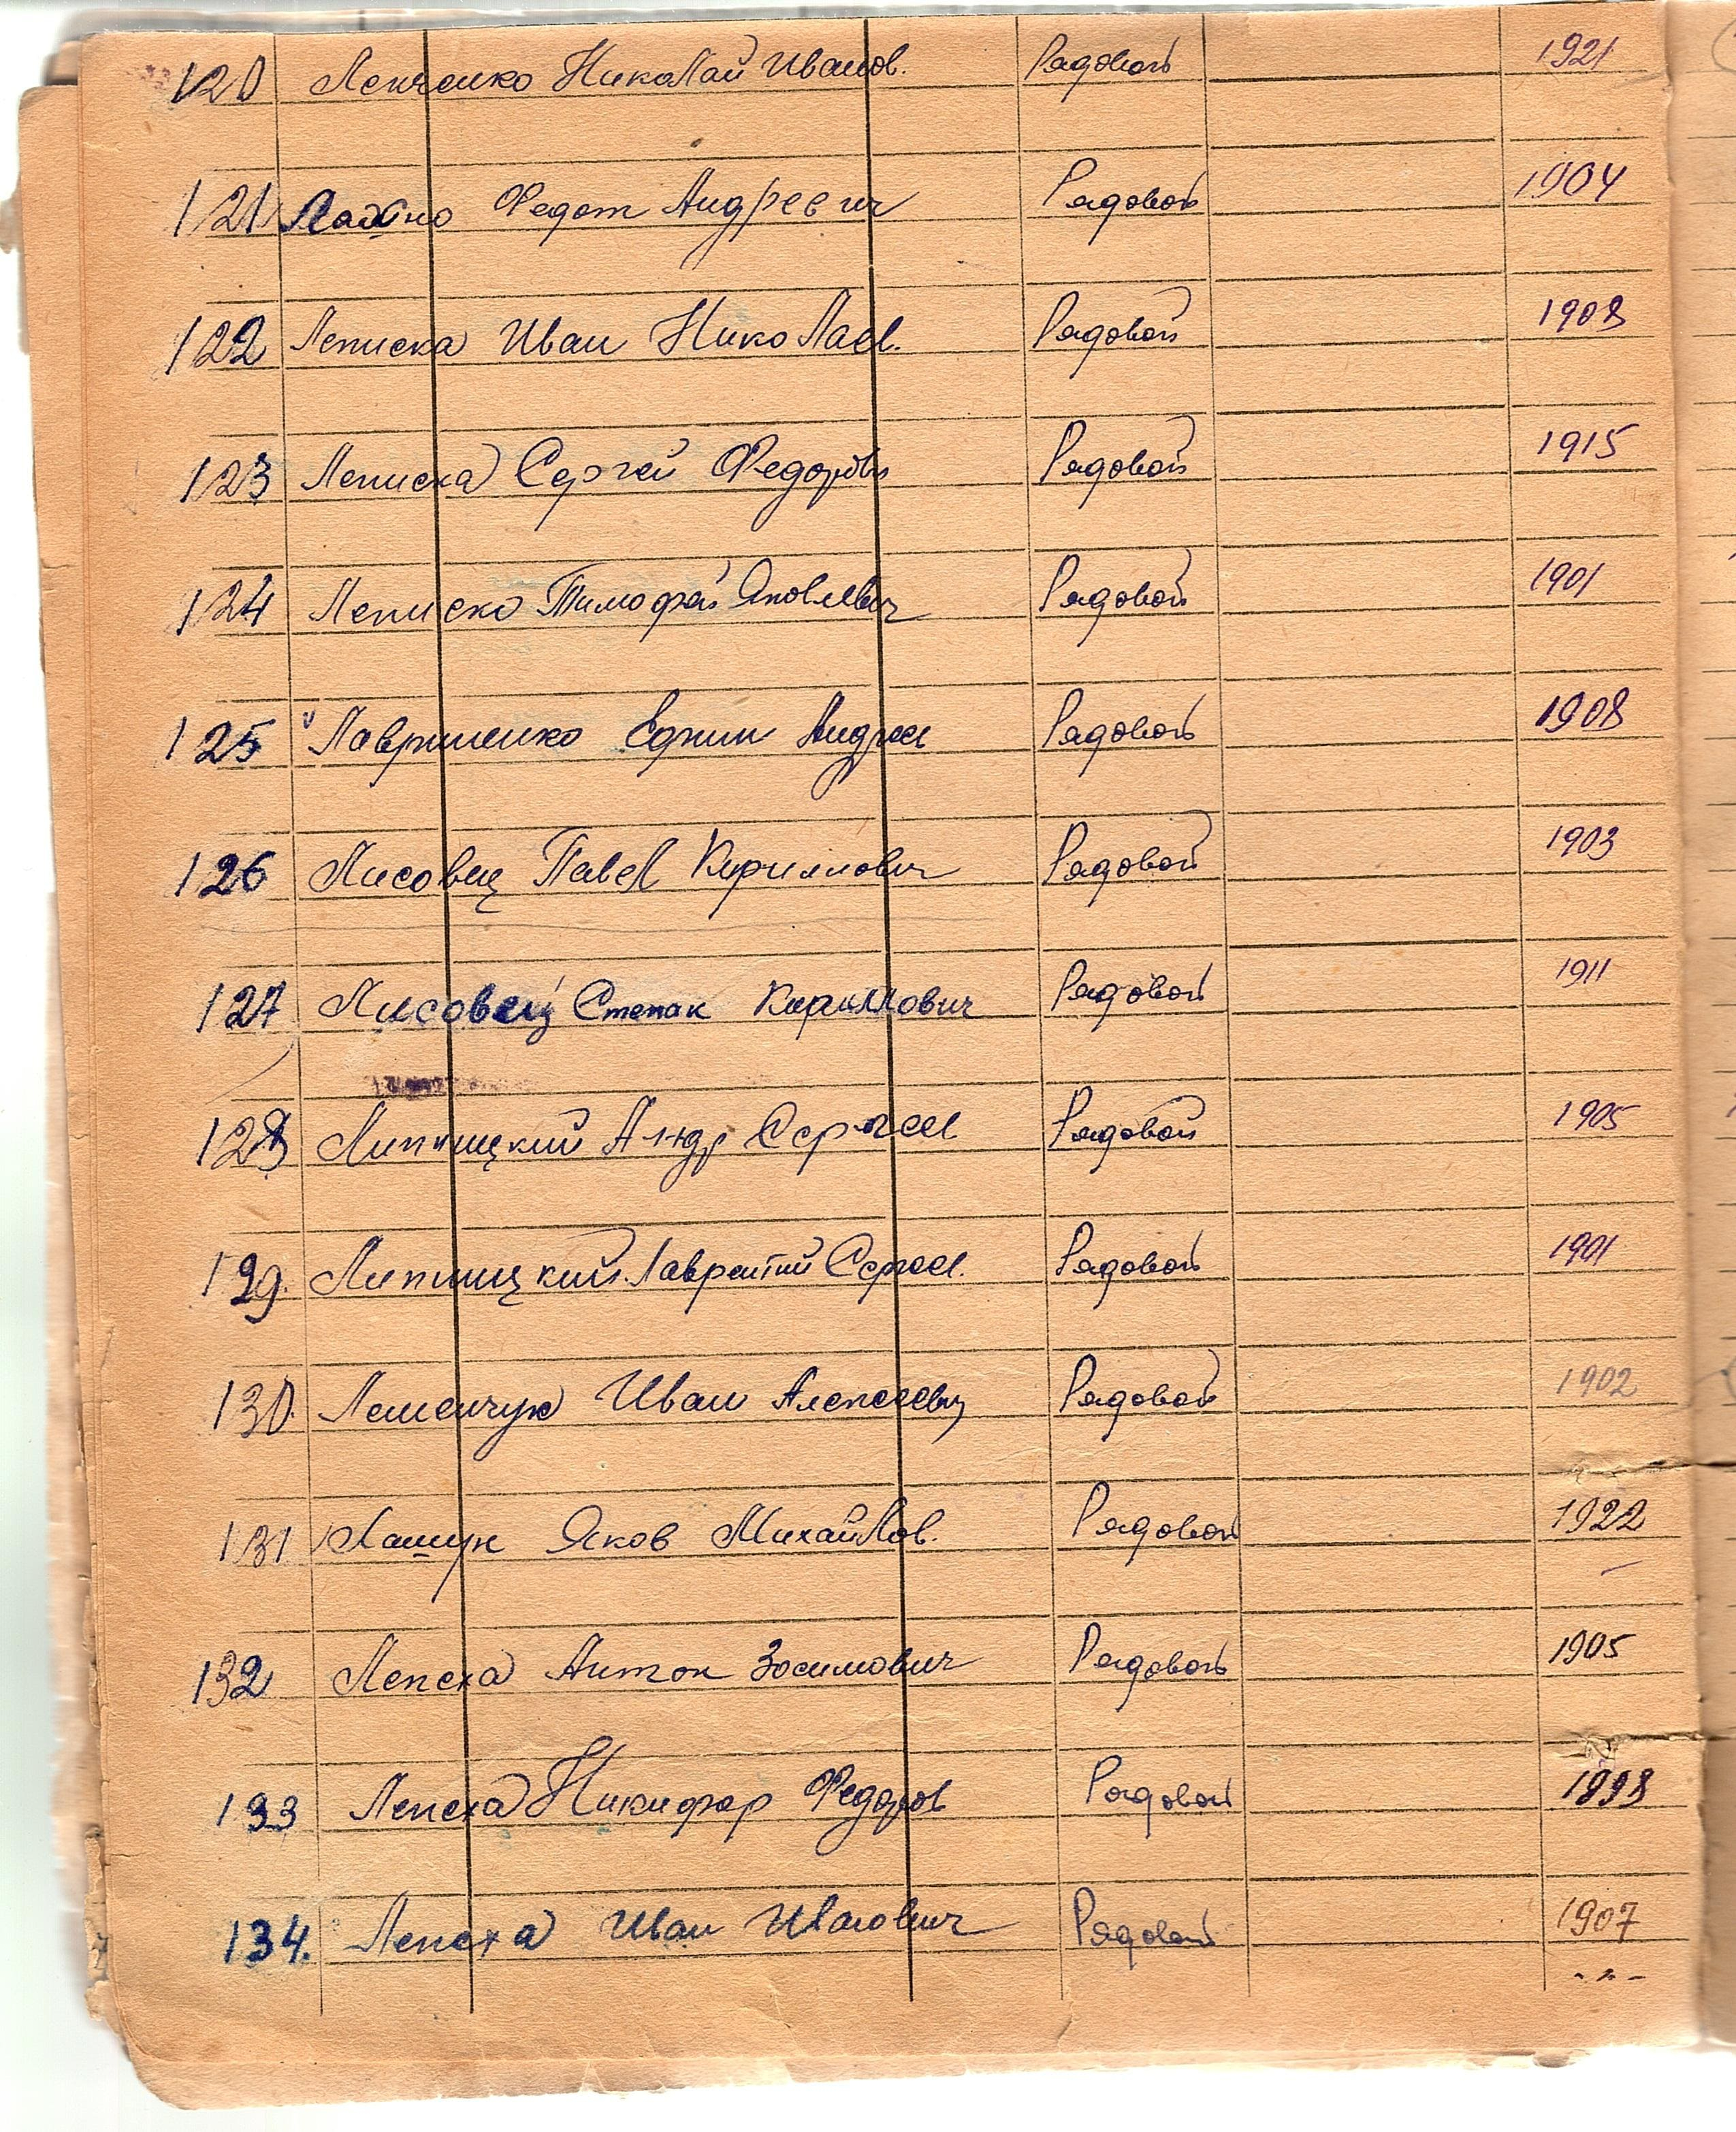 120 Ленченко Николай Иванов. Рядовой 1921
121 Федот Андреевич Рядовой 1904
122 Леписка Иван Николаев. Рядовой 1908
123 Леписка Сергей Федорови Рядовой 1915
124 Леписко Тимофей Яковлевич Рядовой 1901
125 Лавриненко Андрее Рядовой 1908
126 Лисовец Павел Кириллович Рядовой 1903
127 Лисовец Степан Кириллович Рядовой 1911
128 Липницкий Сергеев Рядовой 1905
129. Липницкий Лаврентий Сергеев. Рядовой 1901
130. Лешенчук Иван Алексеевич Рядовой 1902
131 Лащук Яков Михайлов. Рядовой 1922
132 Лепеха Антон Зосимович Рядовой 1905
133 Лепеха Никифор Федоров Рядовой 1898
134. Лепеха Иван Иванович Рядовой 1907
- " -